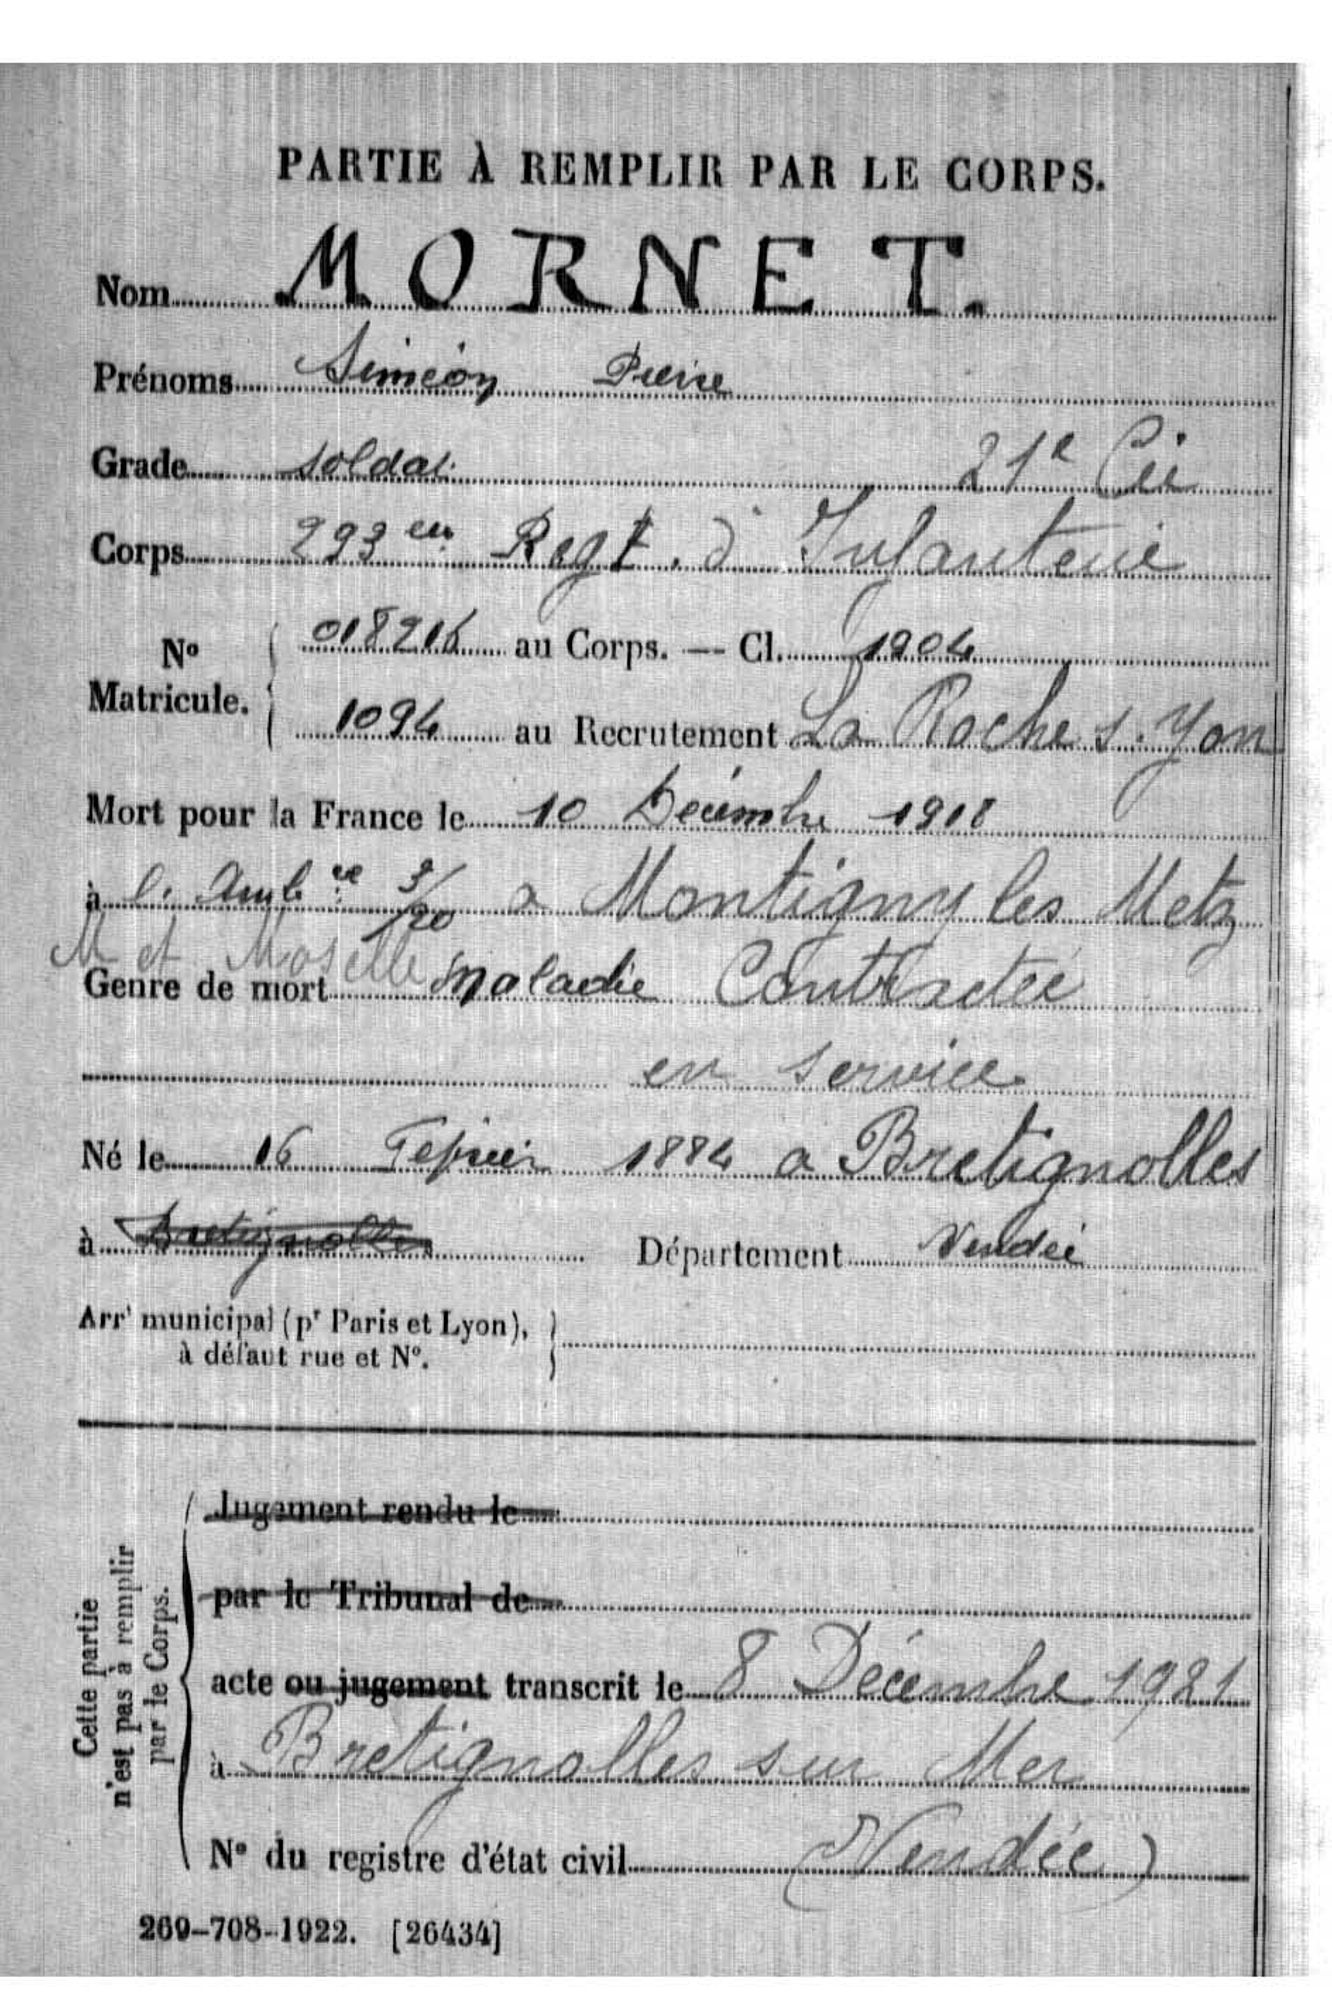 PARTIE À REMPLIR PAR LE CORPS.
Nom MORNET.
Prénoms Siméon Pierre
Grade soldat 21e Cie
Corps 293em Regt. d' Infanterie
No Matricule. 018216 au Corps. — Cl. 1904
1094 au Recrutement La Roche s. Yon
Mort pour la France le 10 Décembre 1918
à l. Ambce 9/20 a Montigny les Metz
M et Moselle
Genre de mort maladie Contractée
en service
Né le 16 Fevrier 1884 a Bretignolles
à Bretignolles Département Vendée
Arrt municipal (pr Paris et Lyon),
à défaut rue et No.
Jugement rendu le
par le Tribunal de
acte ou jugement transcrit le 8 Décembre 1921
à Bretignolles sur Mer
No du registre d'état civil (Vendée)
Cette partie
n'est pas à remplir
par le Corps.
269-708-1922. [26434]